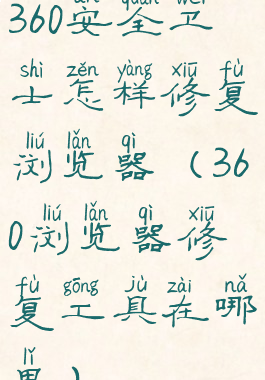 ān quán wèi
360安全卫
shì zěn yàng xiū fù
士怎样修复
liú lǎn qì
浏览器（36
liú lǎn qì xiū
0浏览器修
fù gōng jù zài nǎ
复工具在哪
lǐ
里）